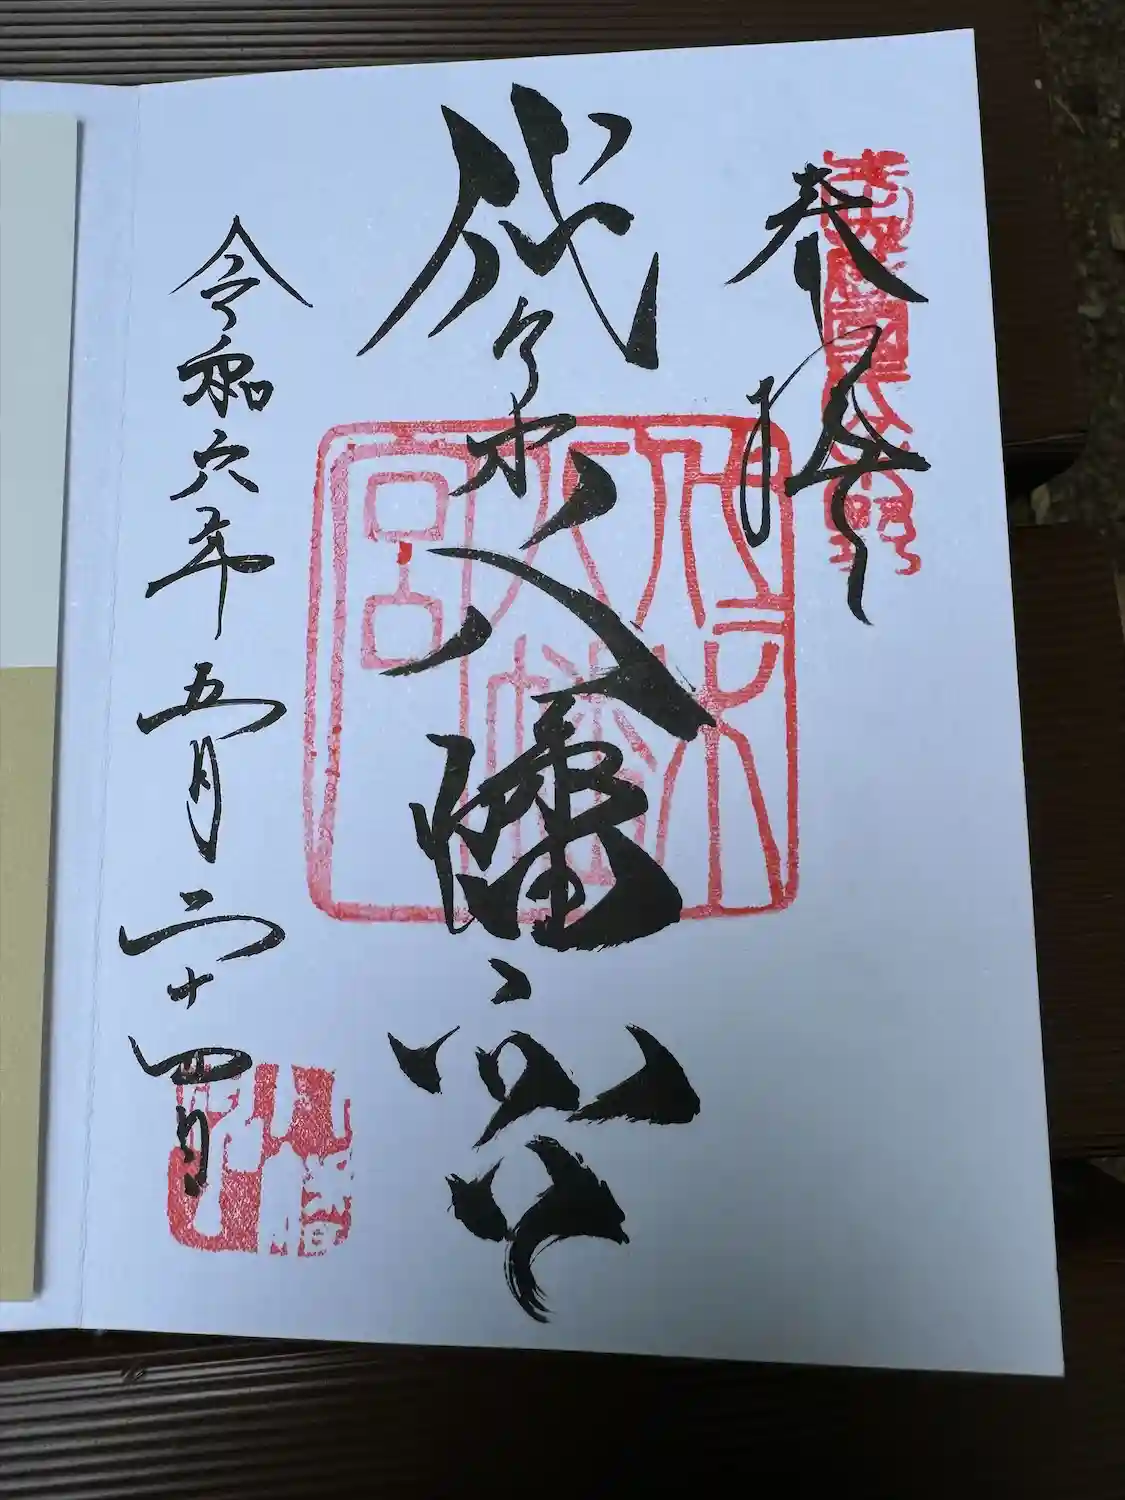 奉拝
代々木八幡宮
令和六年五月二十四日
代々木八幡宮